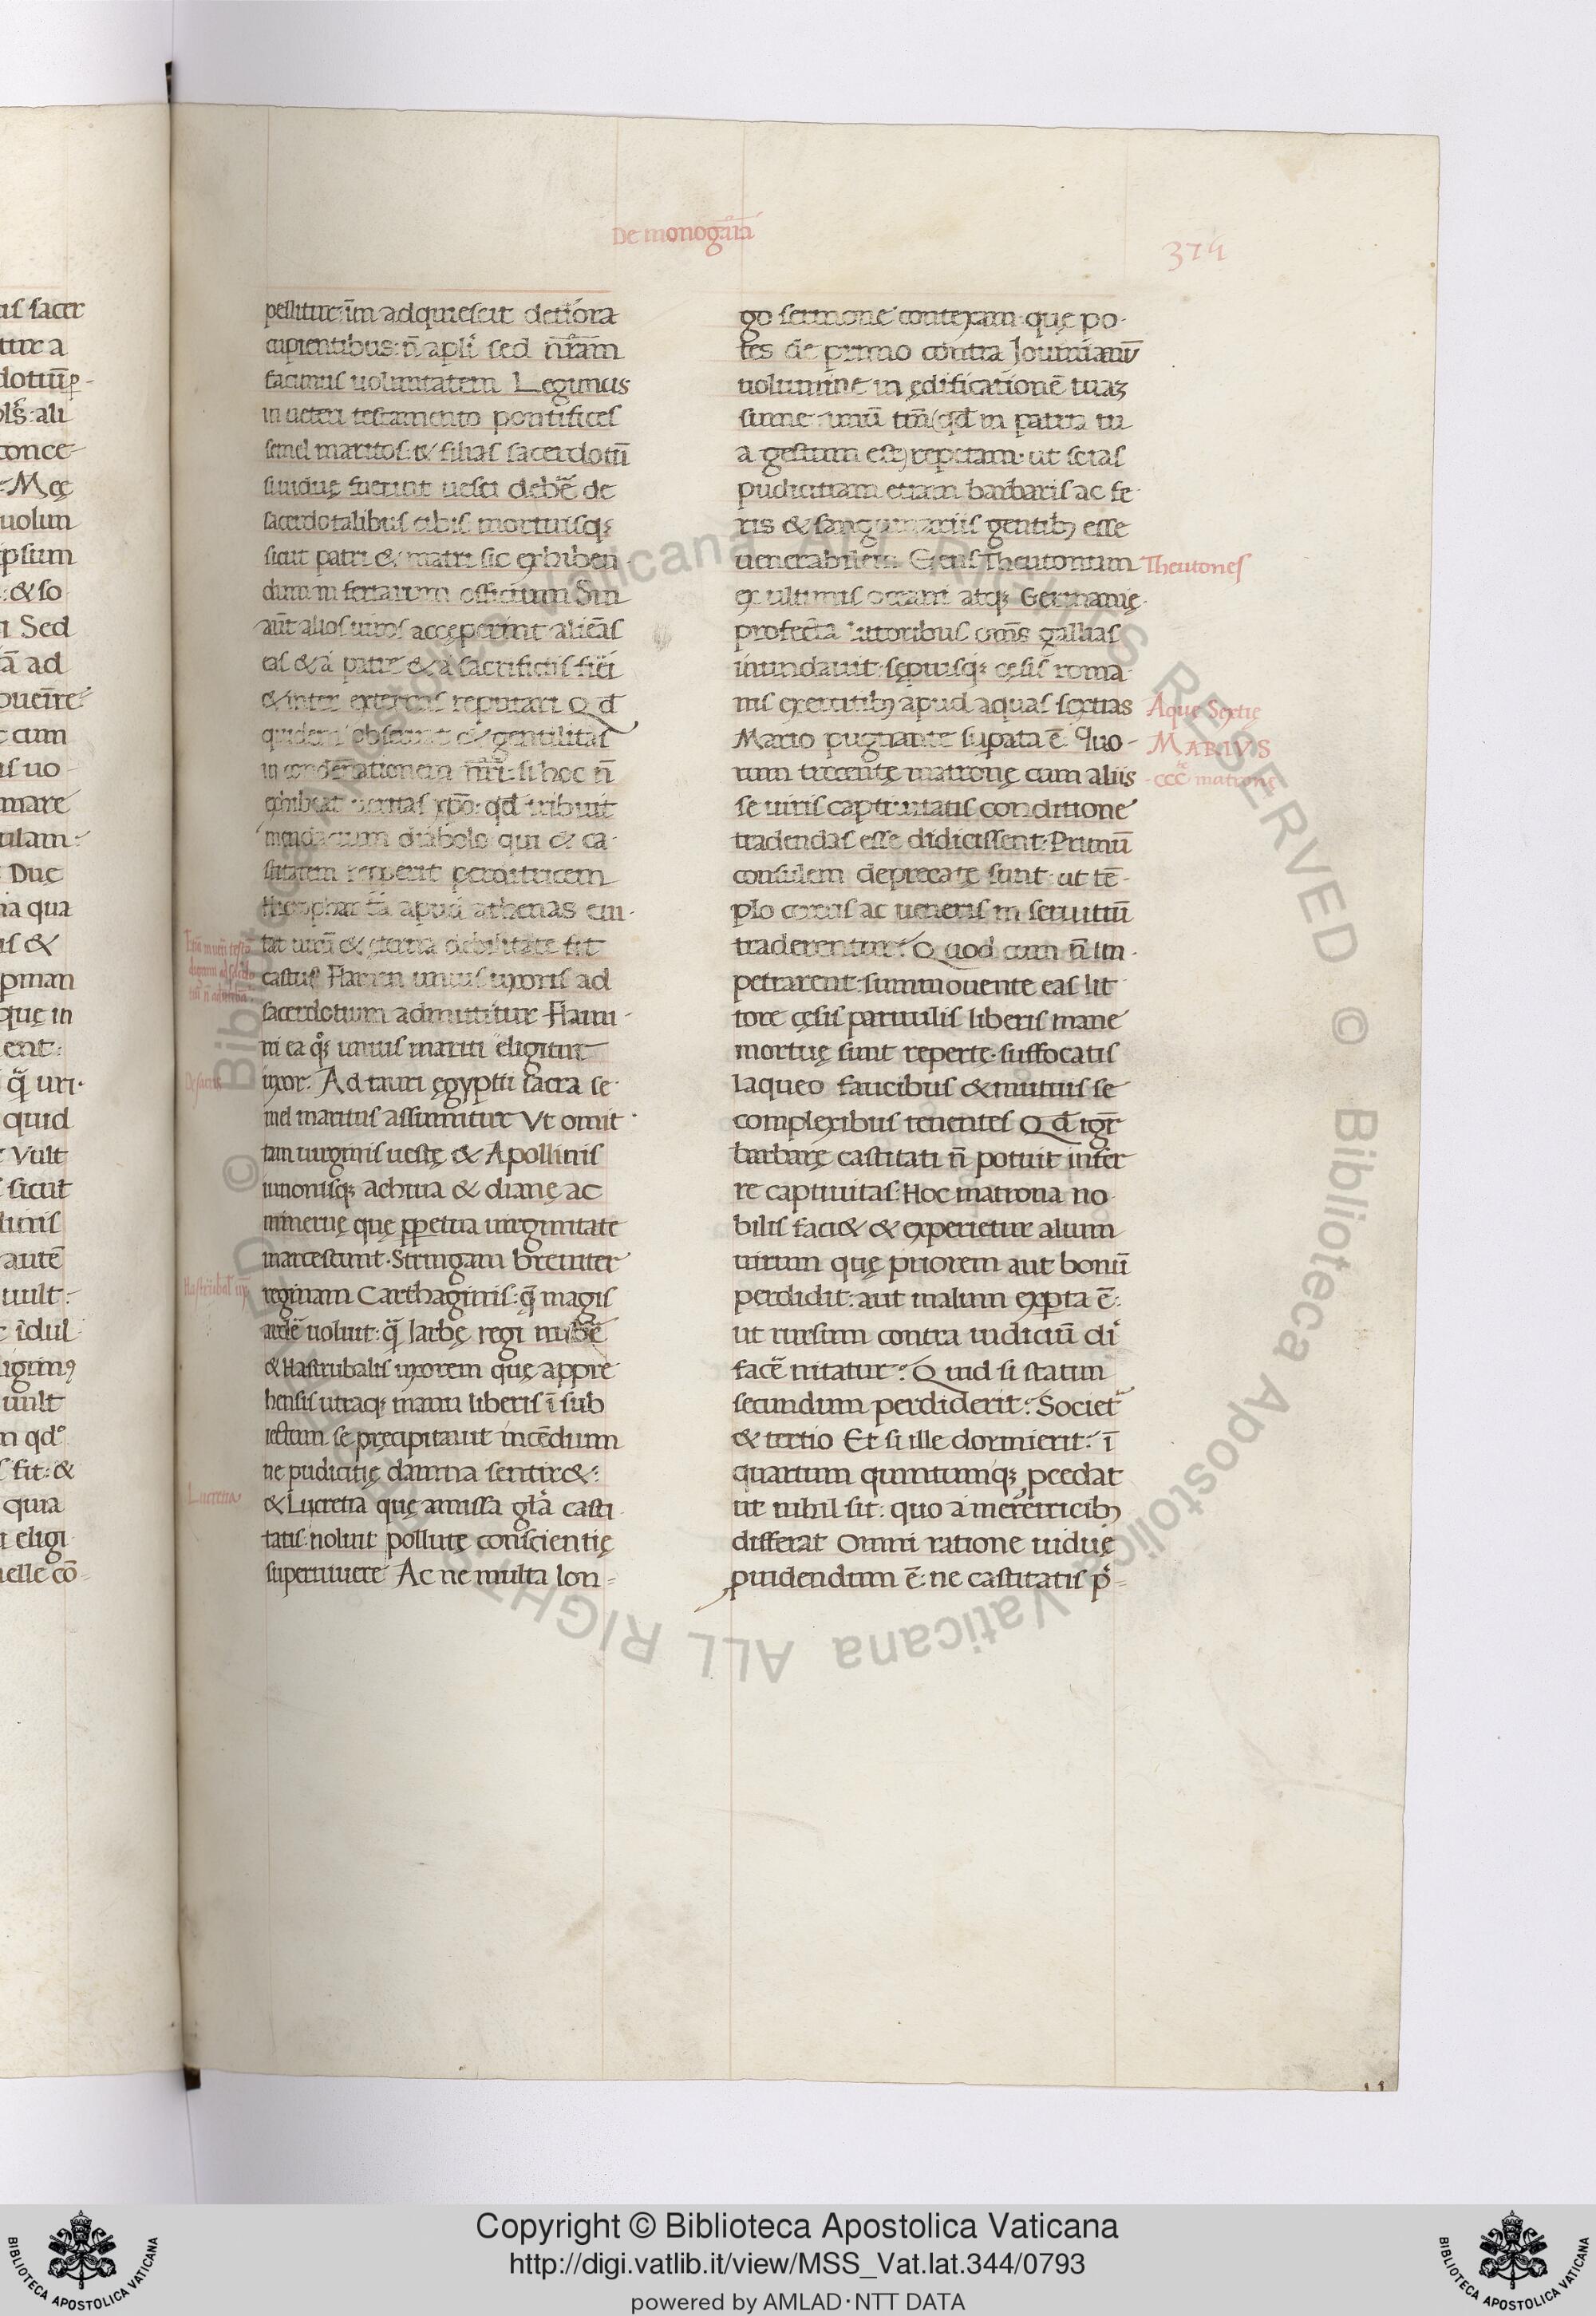 De monogamia
374
pellitur: im̄ adquiescit deteriora
cupientibus: n̄ apl'i sed nr̄am
facimus uoluntatem Legimus
in ueteri testamento pontifices
semel maritos: & filias sacerdotū
si uiduę fuerint uesci debē de
sacerdotalibus cibis mortuisq;
sicut patri & matri sic exhiben
dum inferiarum officium Sin
aūt alios uiros accęperint alienas
eas & a patre & a sacrificiis fieri
& inter externas reputari Qd
quidem obseruat & gentilitas
in condēnationem nr̄i: si hoc n̄
exhibeat ueritas xp̄o: qd tribuit
mendacium diabolo qui & ca-
stitatem repperit perditricem
apud athenas eui-
rat uitā & ęterna debilitate fit
castus Flamen unius uxoris ad
sacerdotium admittitur Flami-
ni ea q; unius mariti eligitur
uxor: Ad tauri ęgyptii sacra se-
mel maritus assumitur Vt omit-
tam uirginis uestę & Apollinis
iunonisq; achiua & dianę ac
mineruę quę ppetua uirginitate
marcescunt. Stringam breuiter
reginam Carthaginis: q̄ magis
ardē uoluit: q̄ Iarbę regi nubē
& Hastrubalis uxorem quę appre
hensis utraq; manu liberis ī sub
iectum se pręcipitauit incēdium
ne pudicitię damna sentir&:
& Lucretia quę amissa gl̄a casti
tatis: noluit pollutę conscientię
superuiuere Ac ne multa lon-
go sermone contexam: quę po-
tes de primo contra Iouinianū
uolumine in ędificationē tuaʒ
sume: unū tm̄ (qd in patria tu
a gestum est) repetam. ut scias
pudicitiam etiam barbaris ac fe-
ris & sanguinariis gentib; esse
uenerabilem Gens Theutonum
ex ultimis oceani atq; Germanię
profecta litoribus om̄s gallias
inundauit: sępiusq; cęsis roma-
nis exercitib; apud aquas sextias
Mario pugnante supata ē. Quo-
rum trecentę matronę cum aliis
se uiris captiuitatis conditione
tradendas esse didicissent: Primū
consulem deprecatę sunt: ut tē-
plo cereris ac ueneris in seruitiū
traderentur: Quod cum n̄ im-
petrarent: summouente eas lit
tore cęsis paruulis liberis mane
mortuę sunt repertę. suffocatis
laqueo faucibus & mutuis se
complexibus tenentes Qd igr̄
barbarę castitati n̄ potuit infer
re captiuitas: Hoc matrona no
bilis faci& & experietur alium
uirum quę priorem aut bonū
perdidit: aut malum expta ē:
ut rursum contra iudiciū di
facē nitatur? Quid si statim
secundum perdiderit? Societ
& tertio Et si ille dormierit: ī
quartum quintumq; pcedat
ut nihil sit: quo a meretricib;
differat Omni ratione uiduę
puidendum ē: ne castitatis p-
Theutones
Aque Sextie
MARIVS
CCC matronę
Lucretia
Copyright © Biblioteca Apostolica Vaticana
http://digi.vatlib.it/view/MSS_Vat.lat.344/0793
powered by AMLAD·NTT DATA
BIBLIOTECA APOSTOLICA VATICANA
BIBLIOTECA APOSTOLICA VATICANA